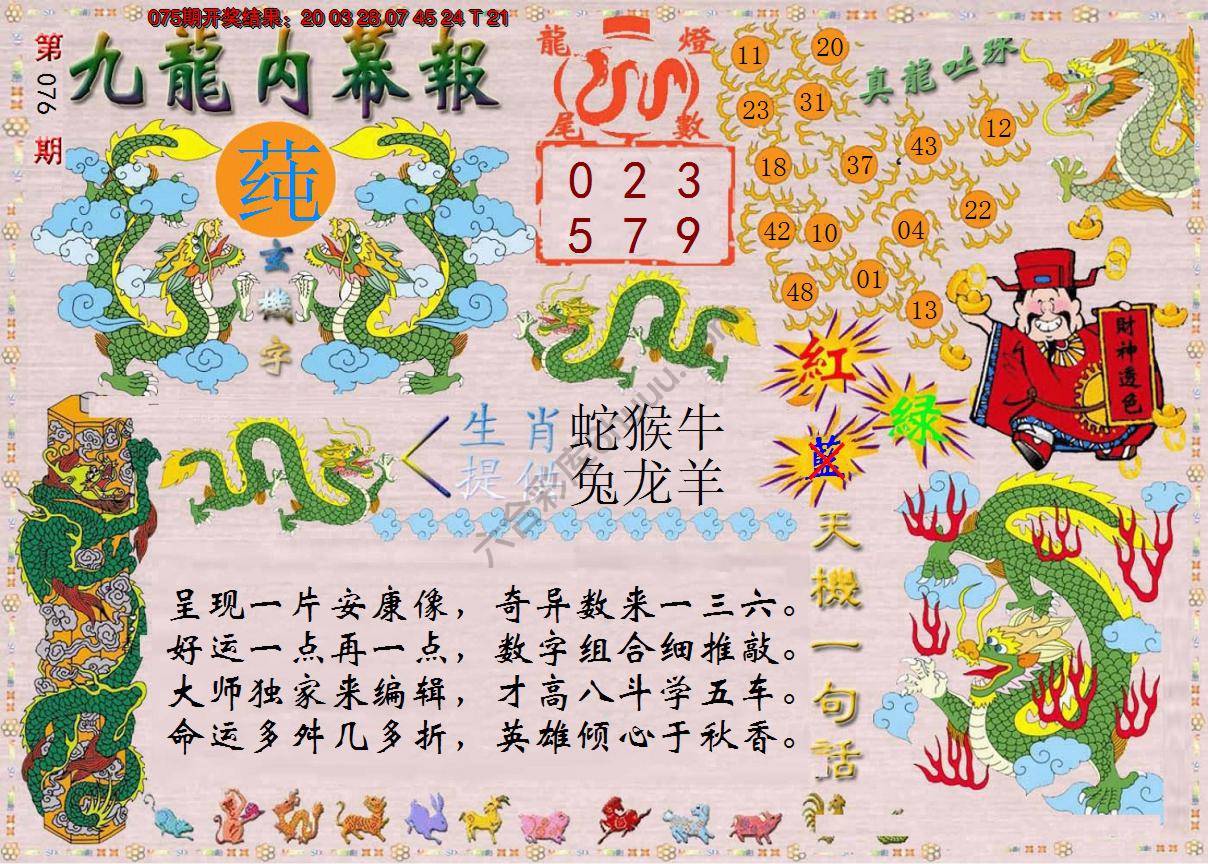 075期开奖结果：20 03 28 07 45 24 T 21
第076期
九龍内幕報
莼
玄機字
龍燈
尾數
0 2 3
5 7 9
真龍吐珠
11
20
23
31
18
37
43
12
42
10
04
22
48
01
13
財神透色
紅
綠
藍
生肖
提供
蛇猴牛
兔龙羊
天機一句話
呈现一片安康像，奇异数来一三六。
好运一点再一点，数字组合细推敲。
大师独家来编辑，才高八斗学五车。
命运多舛几多折，英雄倾心于秋香。